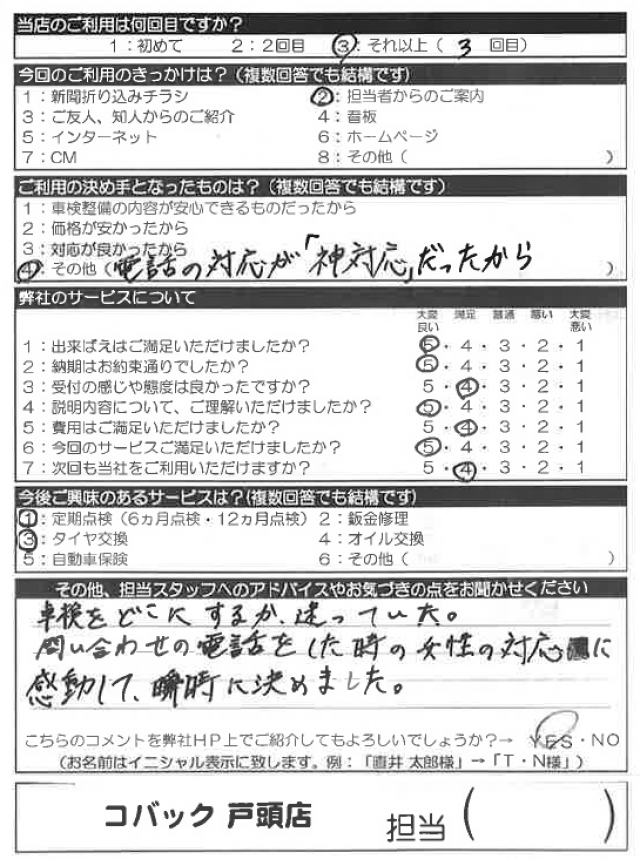 当店のご利用は何回目ですか?
1:初めて 2:2回目 ③:それ以上( 3 回目)
今回のご利用のきっかけは?(複数回答でも結構です)
1:新聞折り込みチラシ ②:担当者からのご案内
3:ご友人、知人からのご紹介 4:看板
5:インターネット 6:ホームページ
7:CM 8:その他( )
ご利用の決め手となったものは?(複数回答でも結構です)
1:車検整備の内容が安心できるものだったから
2:価格が安かったから
3:対応が良かったから
④:その他(電話の対応が「神対応」だったから )
弊社のサービスについて
大変良い 満足 普通 悪い 大変悪い
1:出来ばえはご満足いただけましたか? ⑤・4・3・2・1
2:納期はお約束通りでしたか? ⑤・4・3・2・1
3:受付の感じや態度は良かったですか? 5・④・3・2・1
4:説明内容について、ご理解いただけましたか? ⑤・4・3・2・1
5:費用はご満足いただけましたか? 5・④・3・2・1
6:今回のサービスご満足いただけましたか? ⑤・4・3・2・1
7:次回も当社をご利用いただけますか? 5・④・3・2・1
今後ご興味のあるサービスは?(複数回答でも結構です)
①:定期点検(6ヵ月点検・12ヵ月点検) 2:鈑金修理
③:タイヤ交換 4:オイル交換
5:自動車保険 6:その他( )
その他、担当スタッフへのアドバイスやお気づきの点をお聞かせください
車検をどこにするか、迷っていた。
問い合わせの電話をした時の女性の対応に
感動して、瞬時に決めました。
こちらのコメントを弊社HP上でご紹介してもよろしいでしょうか?→ YES・NO
(お名前はイニシャル表示に致します。例:「直井 太郎様」→「T・N様」)
コバック 芦頭店 担当( )